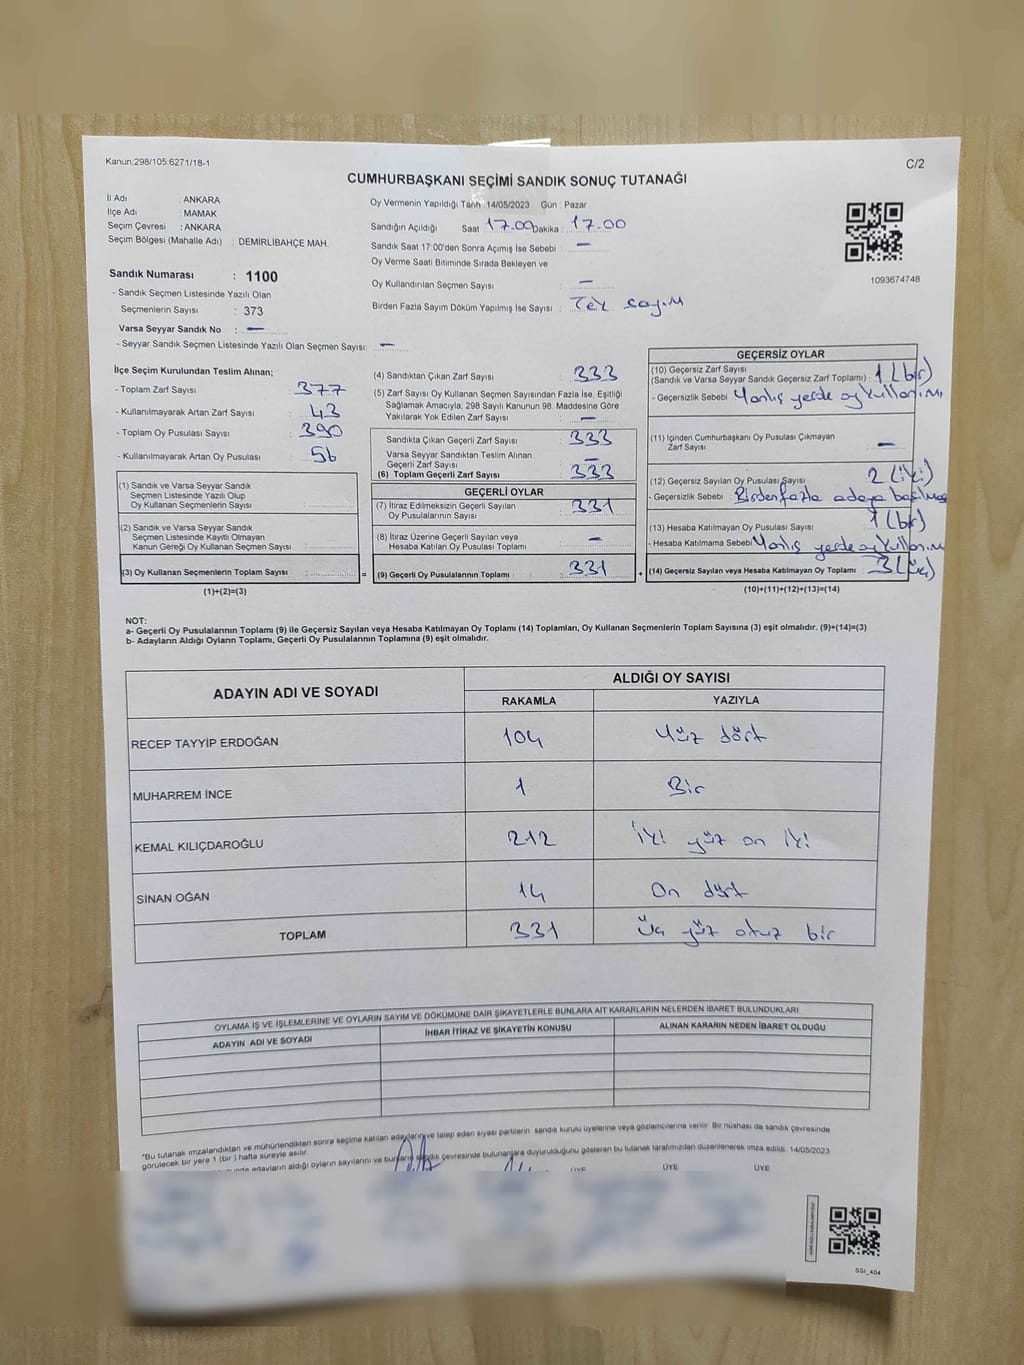 Kanun;298/105;6271/18-1
C/2
CUMHURBAŞKANI SEÇİMİ SANDIK SONUÇ TUTANAĞI
İl Adı : ANKARA
İlçe Adı : MAMAK
Seçim Çevresi : ANKARA
Seçim Bölgesi (Mahalle Adı) : DEMİRLİBAHÇE MAH.
Sandık Numarası : 1100
- Sandık Seçmen Listesinde Yazılı Olan
Seçmenlerin Sayısı : 373
Varsa Seyyar Sandık No : —
- Seyyar Sandık Seçmen Listesinde Yazılı Olan Seçmen Sayısı: —
Oy Vermenin Yapıldığı Tarih :14/05/2023 Gün : Pazar
Sandığın Açıldığı Saat 17.00 Dakika : 17.00
Sandık Saat 17:00'den Sonra Açımış İse Sebebi : —
Oy Verme Saati Bitiminde Sırada Bekleyen ve
Oy Kullandırılan Seçmen Sayısı : —
Birden Fazla Sayım Döküm Yapılmış İse Sayısı : Tek sayım
1093674748
İlçe Seçim Kurulundan Teslim Alınan;
- Toplam Zarf Sayısı : 377
- Kullanılmayarak Artan Zarf Sayısı : 43
- Toplam Oy Pusulası Sayısı : 390
- Kullanılmayarak Artan Oy Pusulası : 56
(1) Sandık ve Varsa Seyyar Sandık
Seçmen Listesinde Yazılı Olup
Oy Kullanan Seçmenlerin Sayısı :
(2) Sandık ve Varsa Seyyar Sandık
Seçmen Listesinde Kayıtlı Olmayan
Kanun Gereği Oy Kullanan Seçmen Sayısı :
(3) Oy Kullanan Seçmenlerin Toplam Sayısı :
(1)+(2)=(3)
(4) Sandıktan Çıkan Zarf Sayısı : 333
(5) Zarf Sayısı Oy Kullanan Seçmen Sayısından Fazla İse, Eşitliği
Sağlamak Amacıyla, 298 Sayılı Kanunun 98. Maddesine Göre
Yakılarak Yok Edilen Zarf Sayısı : —
Sandıkta Çıkan Geçerli Zarf Sayısı : 333
Varsa Seyyar Sandıktan Teslim Alınan
Geçerli Zarf Sayısı : —
(6) Toplam Geçerli Zarf Sayısı : 333
GEÇERLİ OYLAR
(7) İtiraz Edilmeksizin Geçerli Sayılan
Oy Pusulalarının Sayısı : 331
(8) İtiraz Üzerine Geçerli Sayılan veya
Hesaba Katılan Oy Pusulası Toplamı : —
= (9) Geçerli Oy Pusulalarının Toplamı : 331 +
GEÇERSİZ OYLAR
(10) Geçersiz Zarf Sayısı
(Sandık ve Varsa Seyyar Sandık Geçersiz Zarf Toplamı) : 1 (bir)
- Geçersizlik Sebebi : Yanlış yerde oy kullanımı
(11) İçinden Cumhurbaşkanı Oy Pusulası Çıkmayan
Zarf Sayısı : —
(12) Geçersiz Sayılan Oy Pusulası Sayısı : 2 (iki)
- Geçersizlik Sebebi : Birden fazla adaya basılması
(13) Hesaba Katılmayan Oy Pusulası Sayısı : 1 (bir)
- Hesaba Katılmama Sebebi : Yanlış yerde oy kullanım
(14) Geçersiz Sayılan veya Hesaba Katılmayan Oy Toplamı : 3 (üç)
(10)+(11)+(12)+(13)=(14)
NOT:
a- Geçerli Oy Pusulalarının Toplamı (9) ile Geçersiz Sayılan veya Hesaba Katılmayan Oy Toplamı (14) Toplamları, Oy Kullanan Seçmenlerin Toplam Sayısına (3) eşit olmalıdır. (9)+(14)=(3)
b- Adayların Aldığı Oyların Toplamı, Geçerli Oy Pusulalarının Toplamına (9) eşit olmalıdır.
ADAYIN ADI VE SOYADI
ALDIĞI OY SAYISI
RAKAMLA YAZIYLA
RECEP TAYYİP ERDOĞAN 104 Yüz dört
MUHARREM İNCE 1 Bir
KEMAL KILIÇDAROĞLU 212 İki yüz on iki
SİNAN OĞAN 14 On dört
TOPLAM 331 Üç yüz otuz bir
OYLAMA İŞ VE İŞLEMLERİNE VE OYLARIN SAYIM VE DÖKÜMÜNE DAİR ŞİKAYETLERLE BUNLARA AİT KARARLARIN NELERDEN İBARET BULUNDUKLARI
ADAYIN ADI VE SOYADI
İHBAR İTİRAZ VE ŞİKAYETİN KONUSU
ALINAN KARARIN NEDEN İBARET OLDUĞU
*Bu tutanak imzalandıktan ve mühürlendikten sonra seçime katılan adayların ve talep eden siyasi partilerin sandık kurulu üyelerine veya gözlemcilerine verilir. Bir nüshası da sandık çevresinde
görülecek bir yere 1 (bir) hafta süreyle asılır.
adayların aldığı oyların sayılarını ve bunların sandık çevresinde bulunanlara duyurulduğunu gösteren bu tutanak tarafımızdan düzenlenerek imza edildi. 14/05/2023
ÜYE ÜYE ÜYE
SSI_404